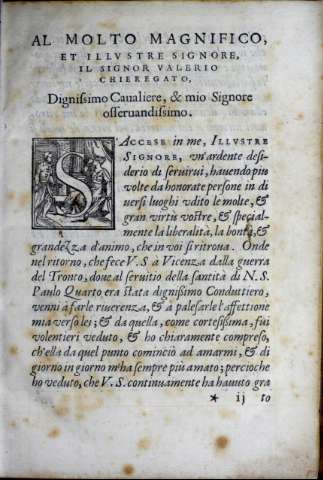 AL MOLTO MAGNIFICO,
ET ILLVSTRE SIGNORE,
IL SIGNOR VALERIO
CHIEREGATO,
Dignissimo Caualiere, & mio Signore
osseruandissimo.
S'ACCESE in me, ILLVSTRE
SIGNORE, vn'ardente desi-
derio di seruirui, hauendo piu
volte da honorate persone in di
uersi luoghi vdito le molte, &
gran virtù vostre, & special-
mente la liberalità, la bontà, &
grandezza d'animo, che in voi si ritroua. Onde
nel ritorno, che fece V.S. à Vicenza dalla guerra
del Tronto, doue al seruitio della santità di N.S.
Paulo Quarto era stata dignissimo Conduttiero,
venni à farle riuerenza, & à palesarle l'affettione
mia verso lei; & da quella, come cortesissima, fui
volentieri veduto, & ho chiaramente compreso,
ch'ella da quel punto cominciò ad amarmi, & di
giorno in giorno m'ha sempre più amato; percioche
ho veduto, che V.S. continuamente ha hauuto gra
* ij to